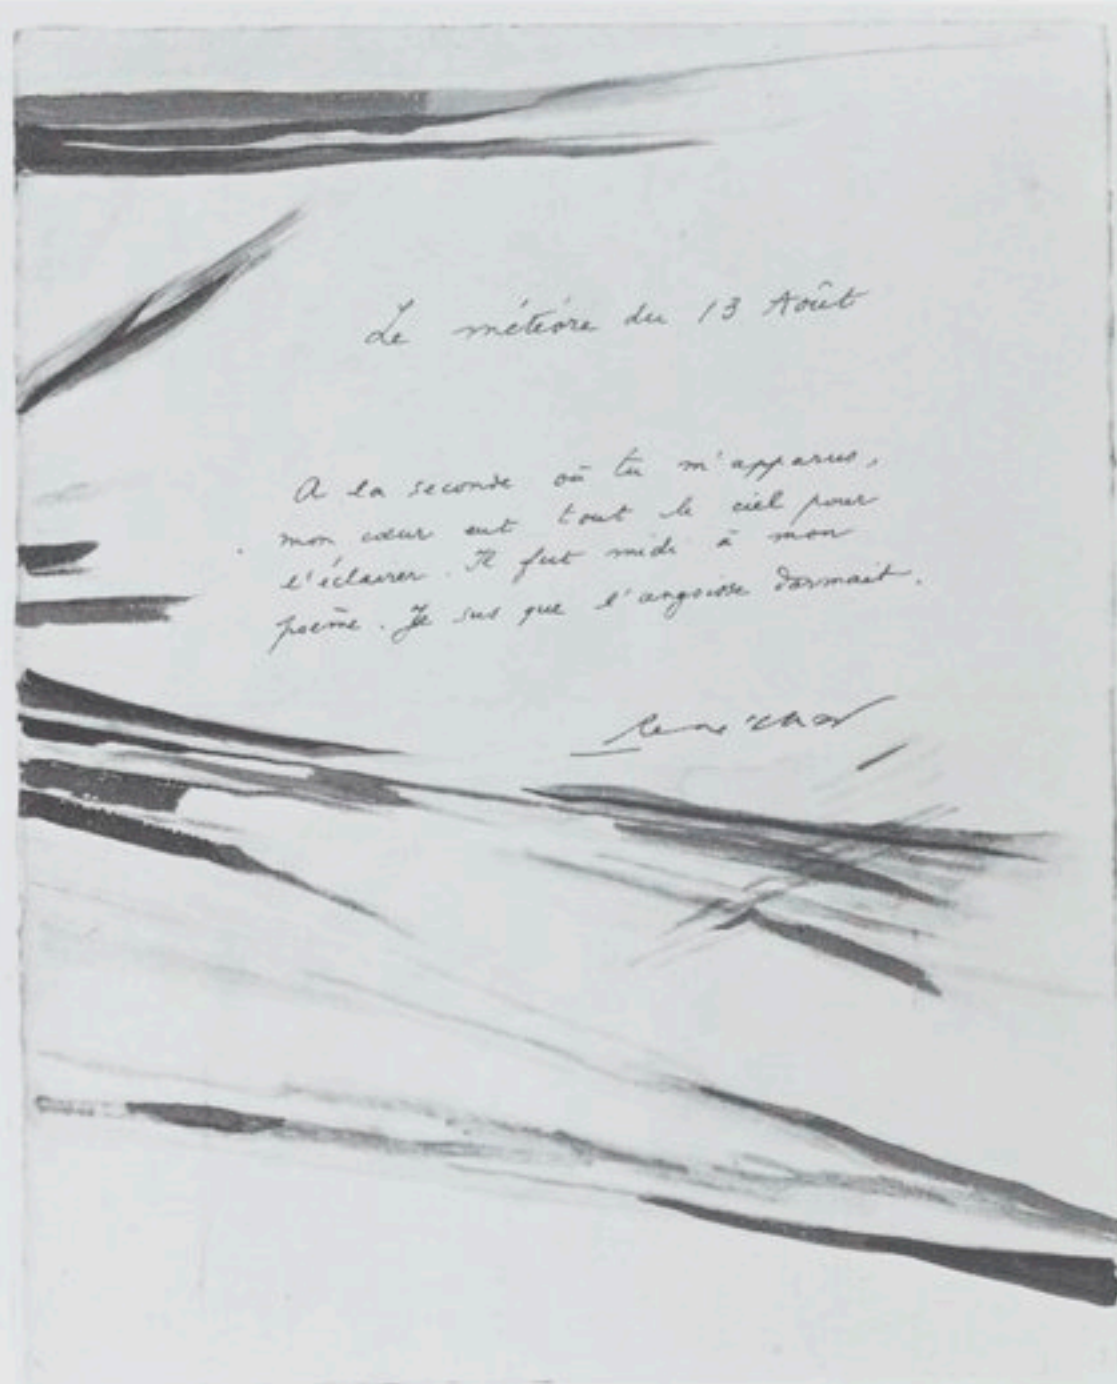 Le météore du 13 Août
A la seconde où tu m'apparus,
mon cœur eut tout le ciel pour
l'éclairer. Il fut midi à mon
poème. Je sus que l'angoisse dormait.
René Char